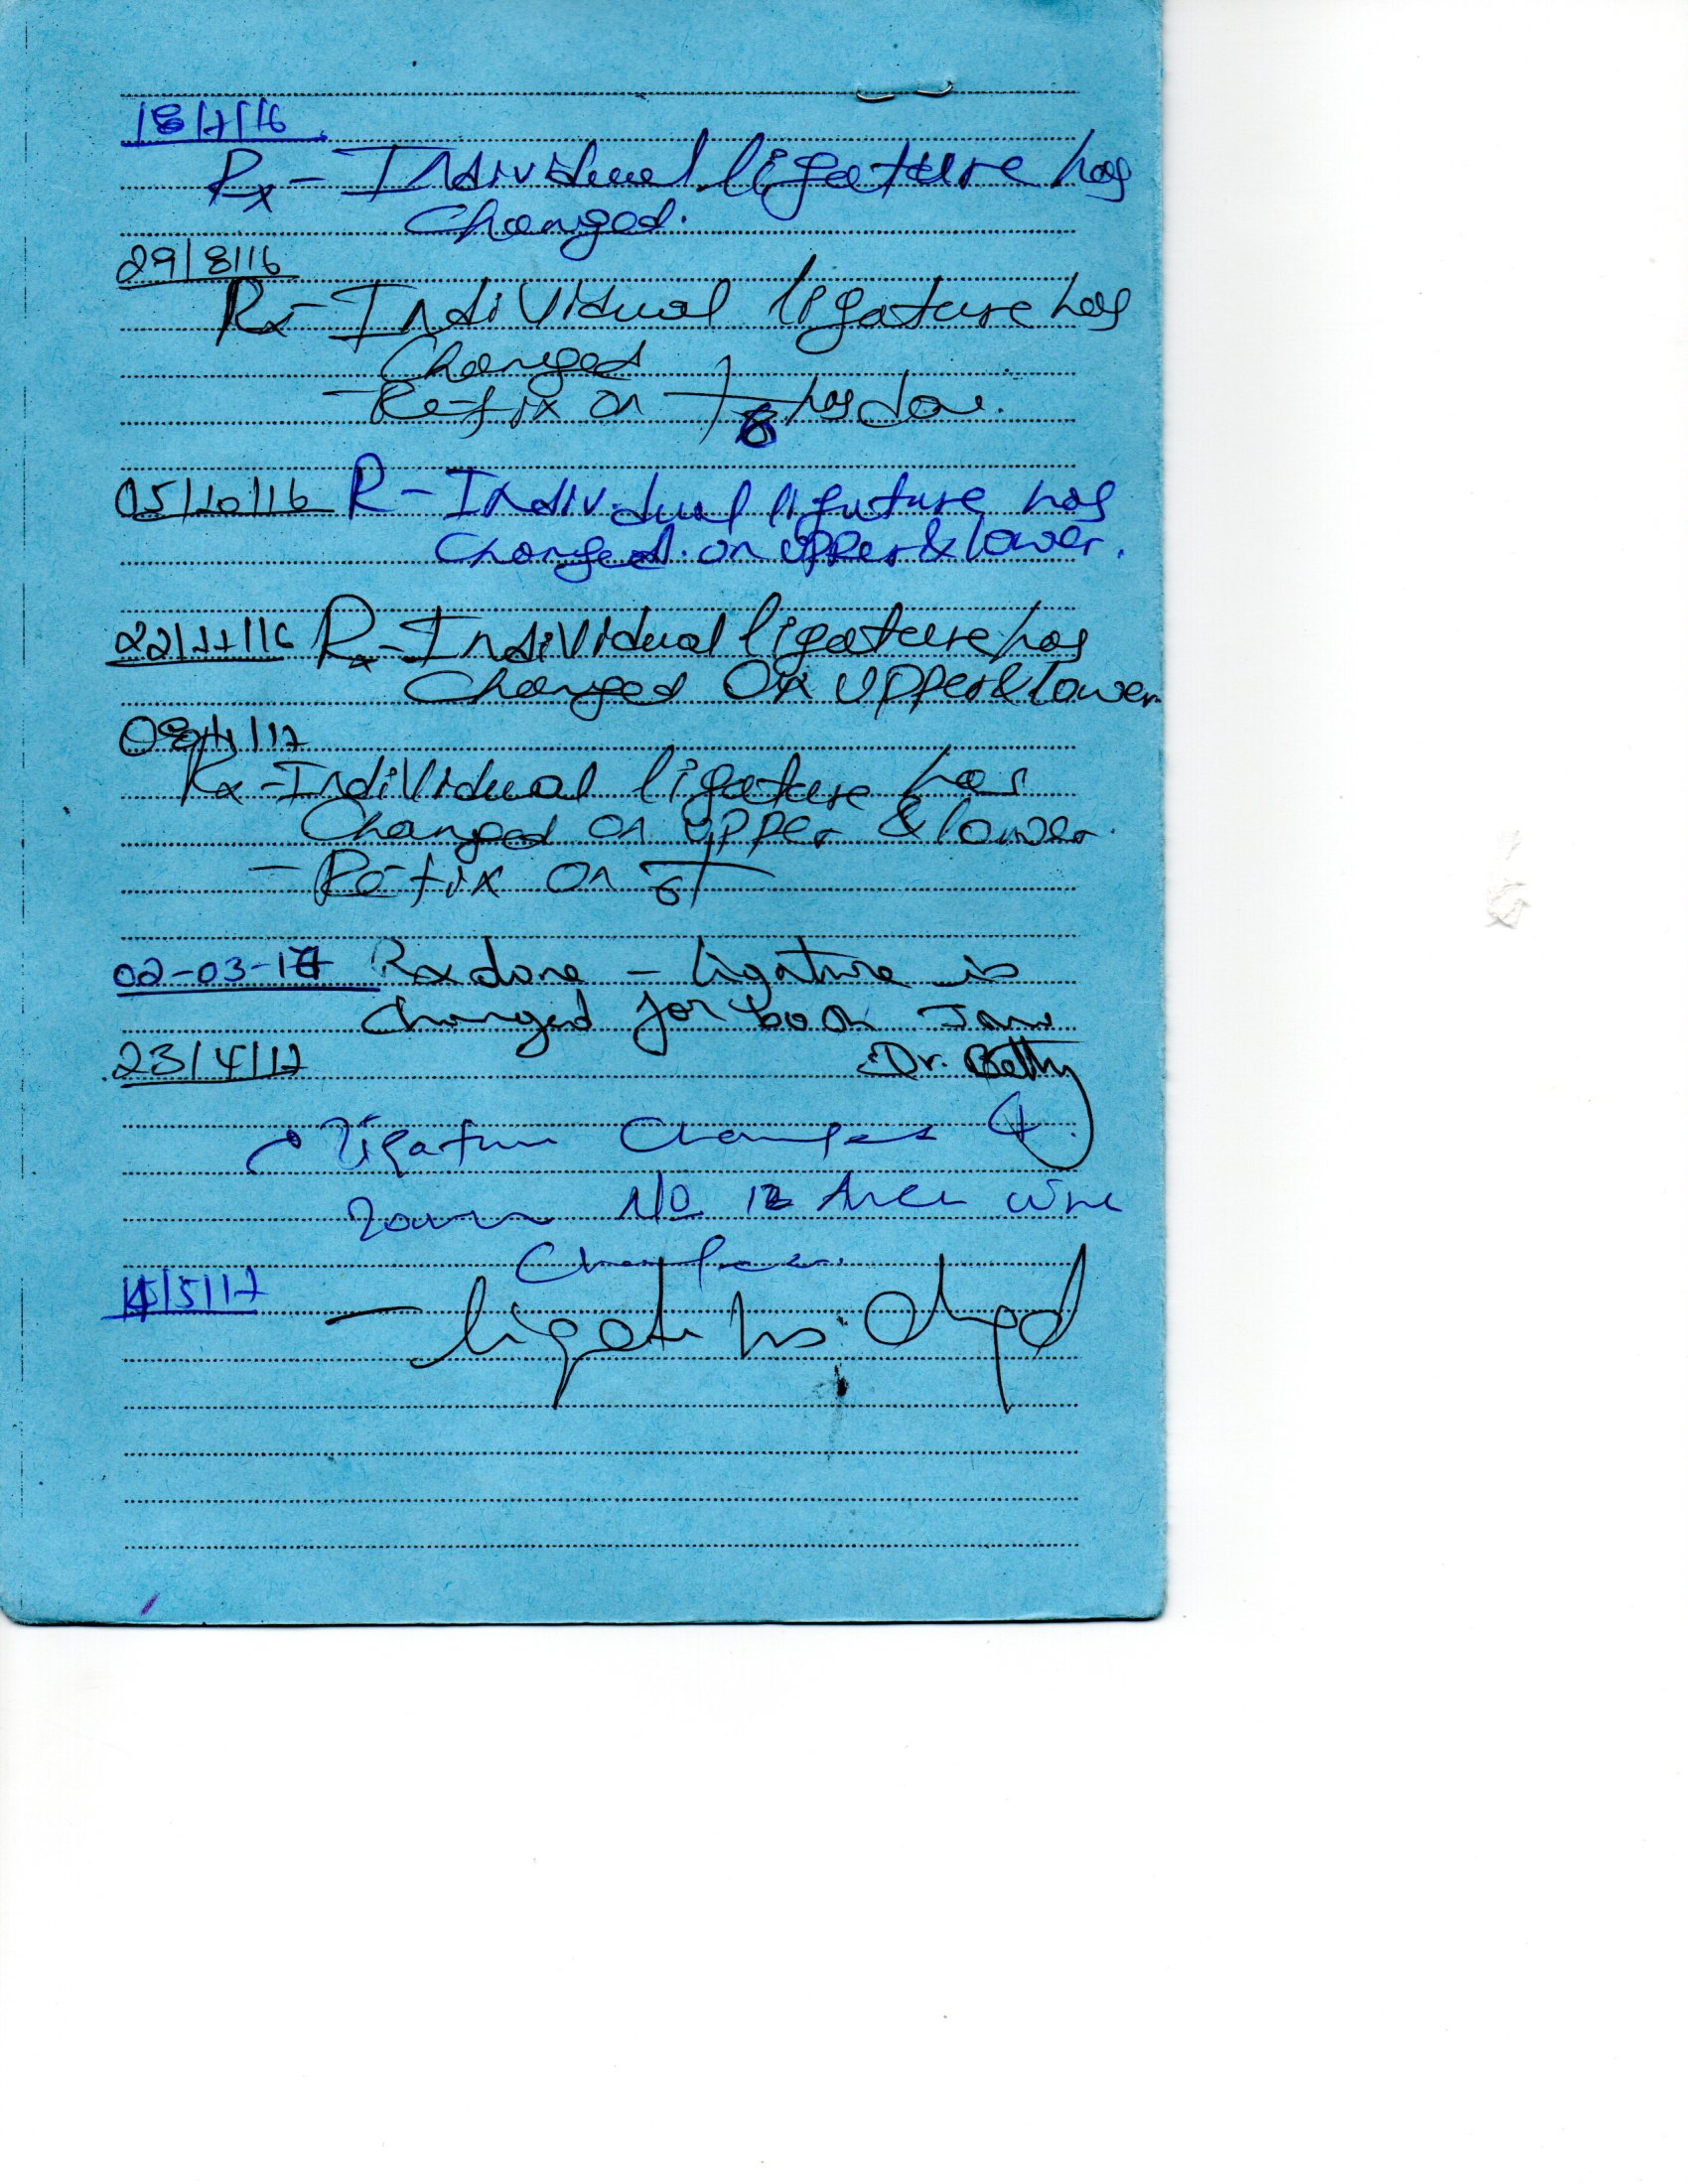 18/7/16
Rx - Individual ligature has
changed.
29/8/16
Rx - Individual ligature has
changed
- Re-fix on 6 has done.
05/10/16 R - Individual ligature has
changed on upper & lower.
22/11/16 Rx - Individual ligature has
changed on upper & lower
/1/17
Rx - Individual ligature has
changed on upper & lower.
- Re-fix on 6
02-03-17 Rx done - ligature is
changed for both Jaw
23/4/17 Dr. Betty
ligature changes &
12 wire
/5/17
- has chged